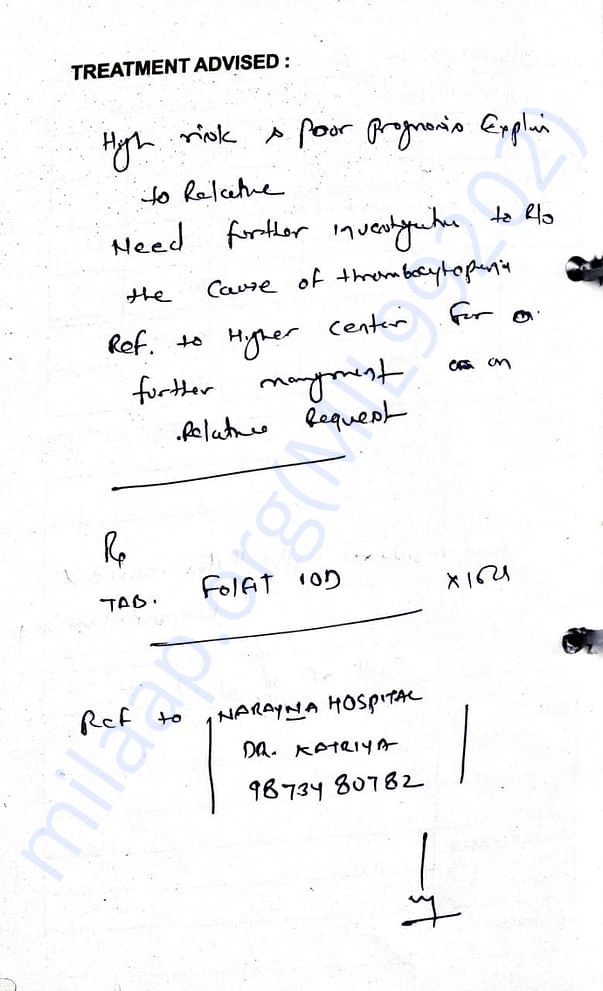 TREATMENT ADVISED :
High risk & Poor Prognosis Explain
to Relative
Need further investigation to R/o
the Cause of thrombocytopenia
Ref. to Higher Center For
further mangment on
Relatives Request
Rp
TAB. FOLET 10D
Ref to NARAYNA HOSPITAL
DR. KATRIYA
98734 80782
milaap.org(MIL99202)